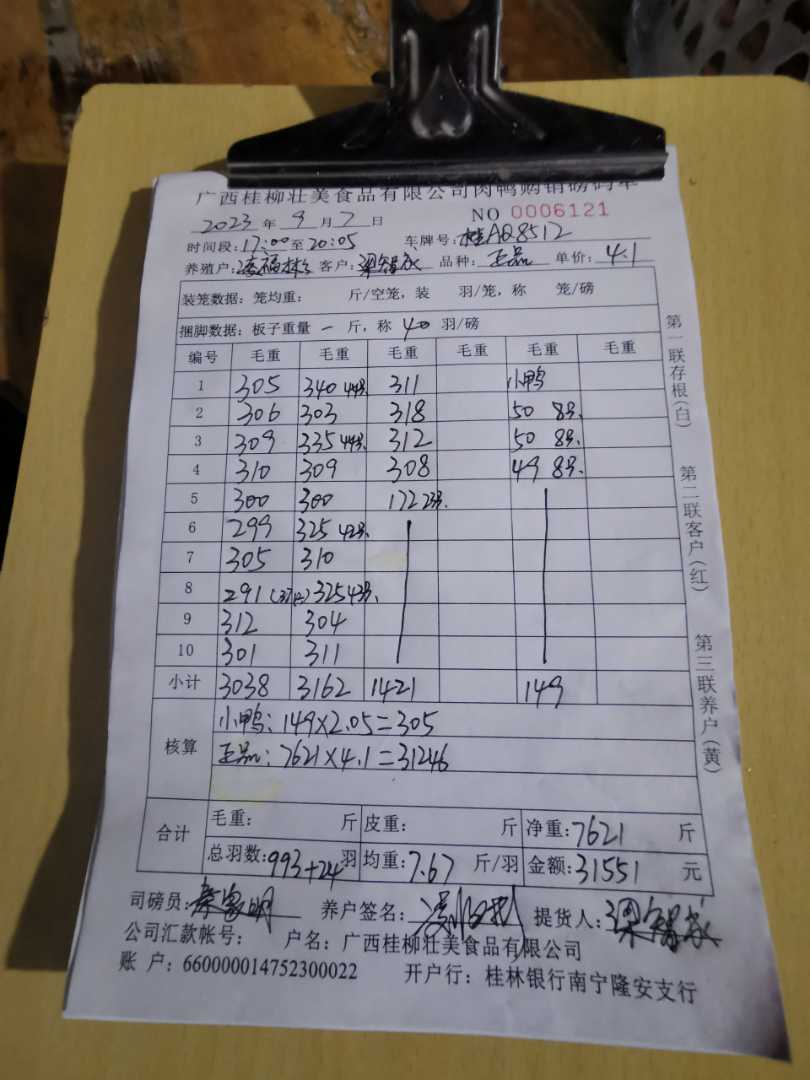 广西桂柳壮美食品有限公司肉鸭购销磅码单
2023 年 9 月 7 日 NO 0006121
时间段:17:00至20:05 车牌号:桂AQ8512
养殖户: 客户:梁智成 品种:正品 单价:4.1
装笼数据:笼均重: 斤/空笼,装 羽/笼,称 笼/磅
捆脚数据:板子重量 一 斤,称 40 羽/磅
编号 毛重 毛重 毛重 毛重 毛重 毛重
1 305 340 44只. 311 小鸭
2 306 303 318 50 8只.
3 309 335 44只. 312 50 8只.
4 310 309 308 49 8只.
5 300 300 172 23只.
6 299 325 42只.
7 305 310
8 291(37只) 325 43只.
9 312 304
10 301 311
小计 3038 3162 1421 149
核算
小鸭:149×2.05=305
正品:7621×4.1=31246
合计
毛重: 斤 皮重: 斤 净重:7621 斤
总羽数:993+24羽 均重:7.67 斤/羽 金额:31551 元
司磅员: 养户签名: 提货人:梁智成
公司汇款帐号: 户名:广西桂柳壮美食品有限公司
账 户:660000014752300022 开户行:桂林银行南宁隆安支行
第一联存根(白)
第二联客户(红)
第三联养户(黄)